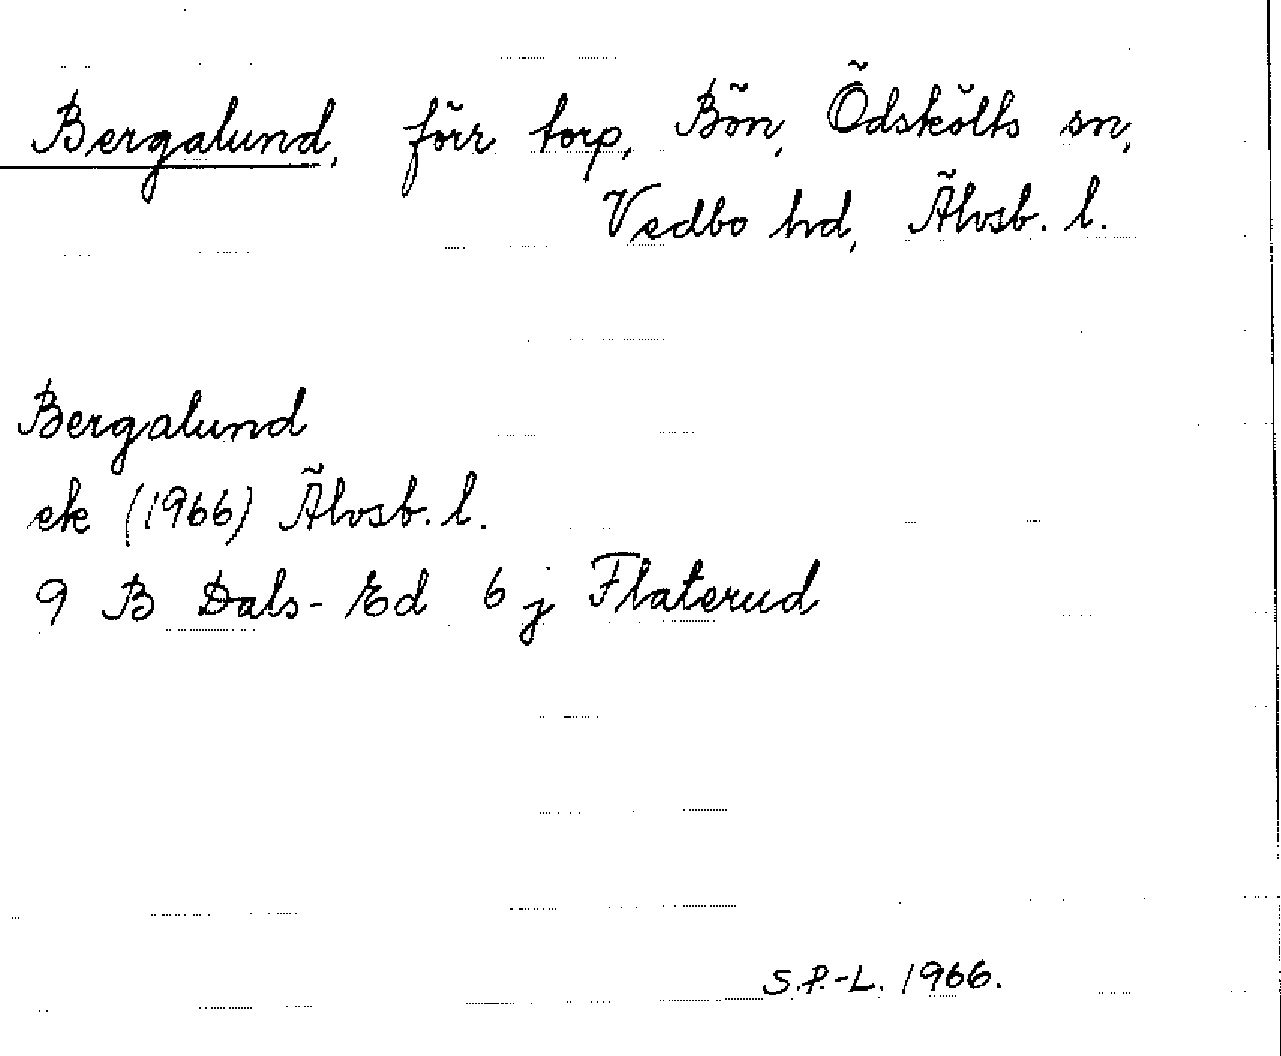 Bergalund, förr torp, Bön, Ödskölts sn,
Vedbo hd, Älvsb. l.
Bergalund
ek (1966) Älvsb. l.
9 B Dals-Ed 6 j Flaterud
S.P.-L. 1966.